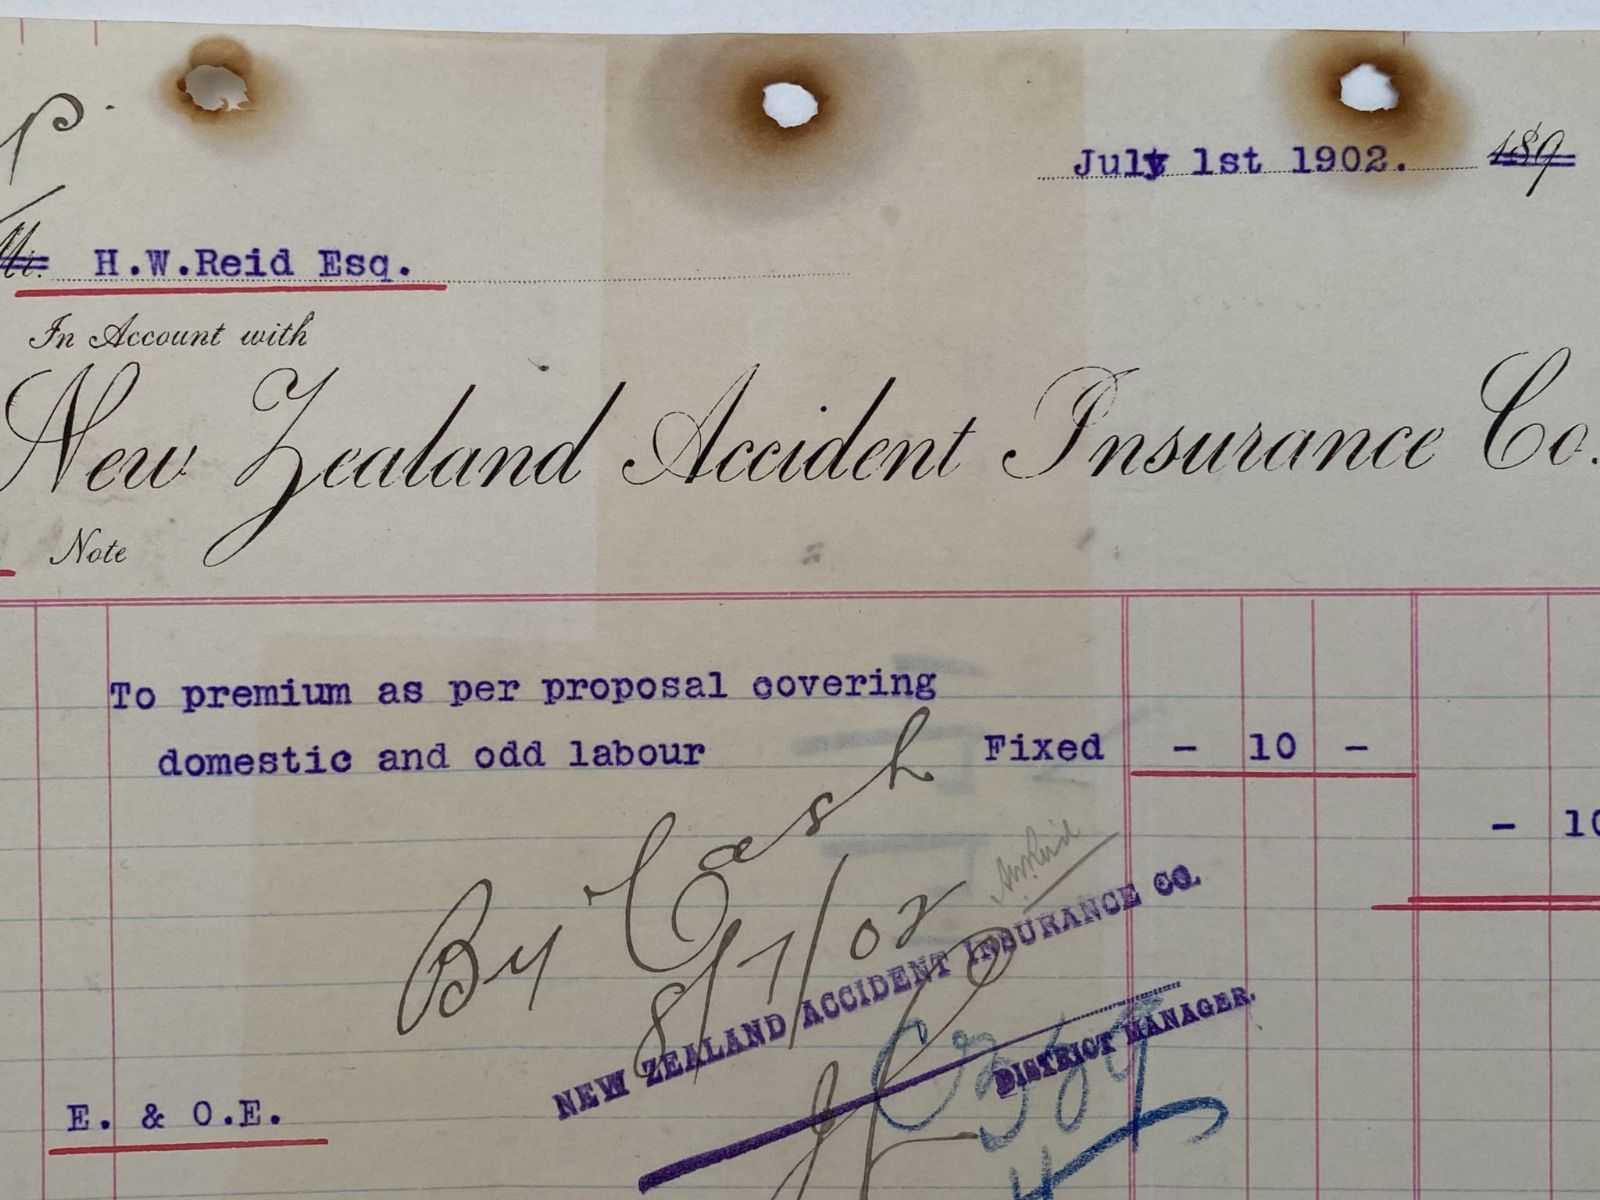 July 1st 1902. 189
Mr. H.W.Reid Esq.
In Account with
New Zealand Accident Insurance Co.
Note
To premium as per proposal covering
domestic and odd labour Fixed - 10 -
- 10
By Cash
8/7/02
NEW ZEALAND ACCIDENT INSURANCE CO.
DISTRICT MANAGER.
E. & O.E.